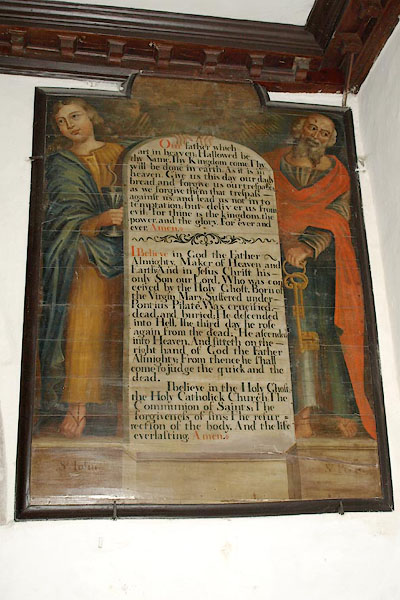 Our father which
art in heaven, Hallowed be
thy Name, Thy Kingdom come Thy
will be done in earth, As it is in
heaven. Give us this day our daily
bread and forgive us our trespasses
as we forgive them that trespass
against us, and lead us not in to
Temptation, but deliver us from
evil, For thine is the kingdom, the
power, and the glory. For ever and
ever. Amen.
I Believe in God the Father
Almighty, Maker of Heaven and
Earth: And in Jesus Christ his
only Son our Lord, Who was con
ceived by the Holy Ghost, Born of
the Virgin Mary, Suffered under
Pontius Pilate, Was crucified
dead, and buried; He descended
into Hell, The third day he rose
again from the dead, He ascended
into Heaven, And sitteth on the
right hand of God the Father
Almighty; From thence he shall
come to judge the quick and the
dead.
I believe in the Holy Ghost,
the Holy Catholick Church, The
Communion of Saints, The
forgiveness of sins; The resur=
rection of the body, And the life
everlasting. Amen.
St John